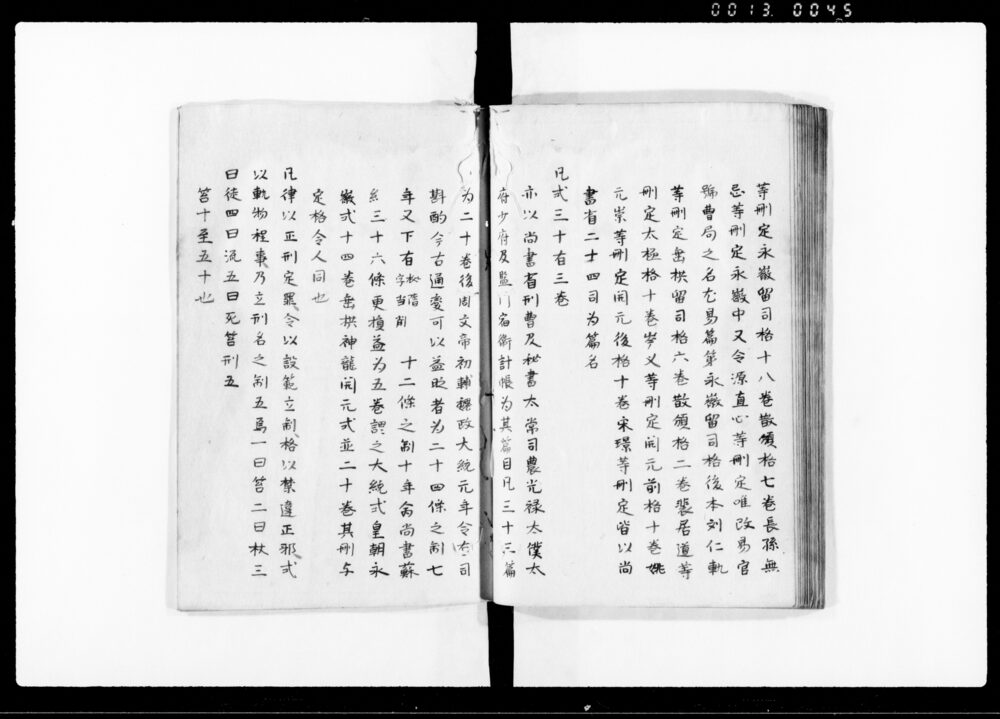 0013 0045
等刪定永徽留司格十八卷散頒格七卷長孫無
忌等刪定永徽中又令源直心等刪定唯改易官
號曹局之名不易篇第永徽留司格後本劉仁軌
等刪定垂拱留司格六卷散頒格二卷裴居道等
刪定太極格十卷岑义等刪定開元前格十卷姚
元崇等刪定開元後格十卷宋璟等刪定皆以尚
書省二十四司为篇名
凡式三十有三卷
亦以尚書省列曹及秘書太常司農光禄太僕太
府少府及監门宿衛計帳为其篇目凡三十三篇
为二十卷後周文帝初輔魏政大統元年令有司
斟酌今古通变可以益时者为二十四條之制七
年又下有
十二條之制十年命尚書蘇
綽三十六條更損益为五卷謂之大統式皇朝永
徽式十四卷垂拱神龍開元式並二十卷其刪与
定格令人同也
凡律以正刑定罪令以設範立制格以禁違正邪式
以軌物程事乃立刑名之制五焉一曰笞二曰杖三
曰徒四曰流五曰死笞刑五
笞十至五十也